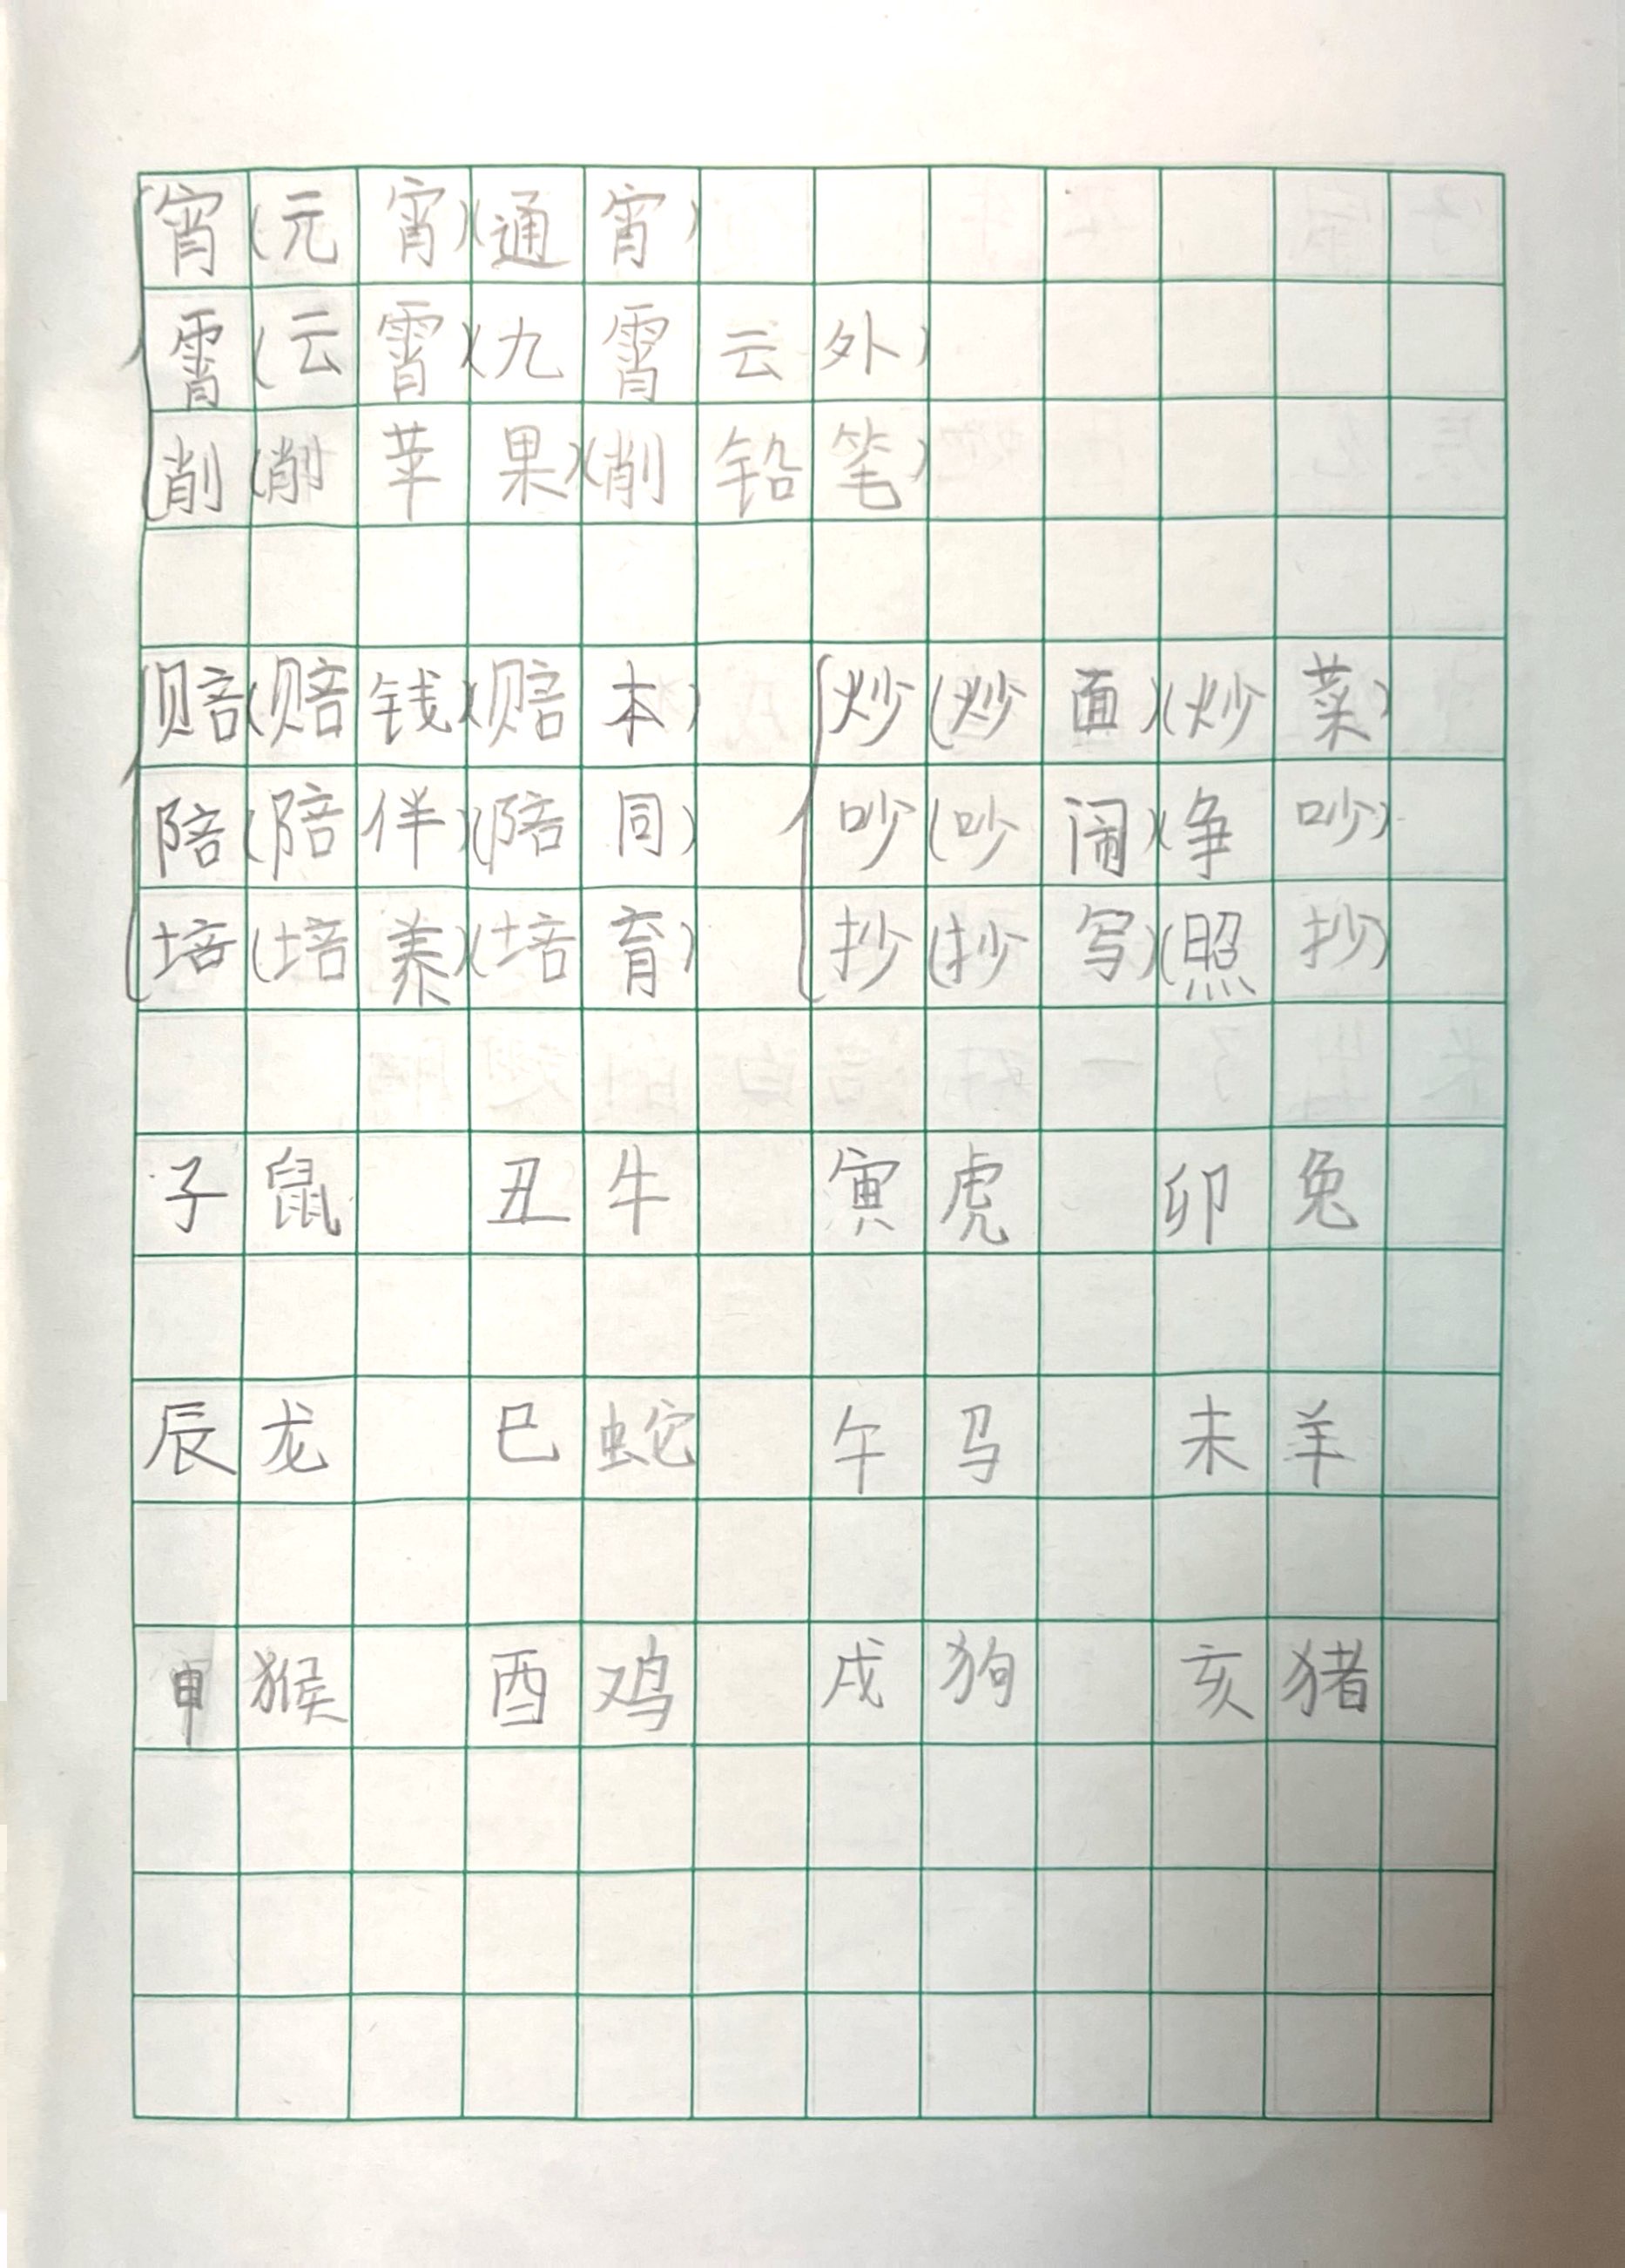 宵(元宵)(通宵)
霄(云霄)(九霄云外)
削(削苹果)(削铅笔)
赔(赔钱)(赔本) 炒(炒面)(炒菜)
陪(陪伴)(陪同) 吵(吵闹)(争吵)
培(培养)(培育) 抄(抄写)(照抄)
子鼠 丑牛 寅虎 卯兔
辰龙 巳蛇 午马 未羊
申猴 酉鸡 戌狗 亥猪